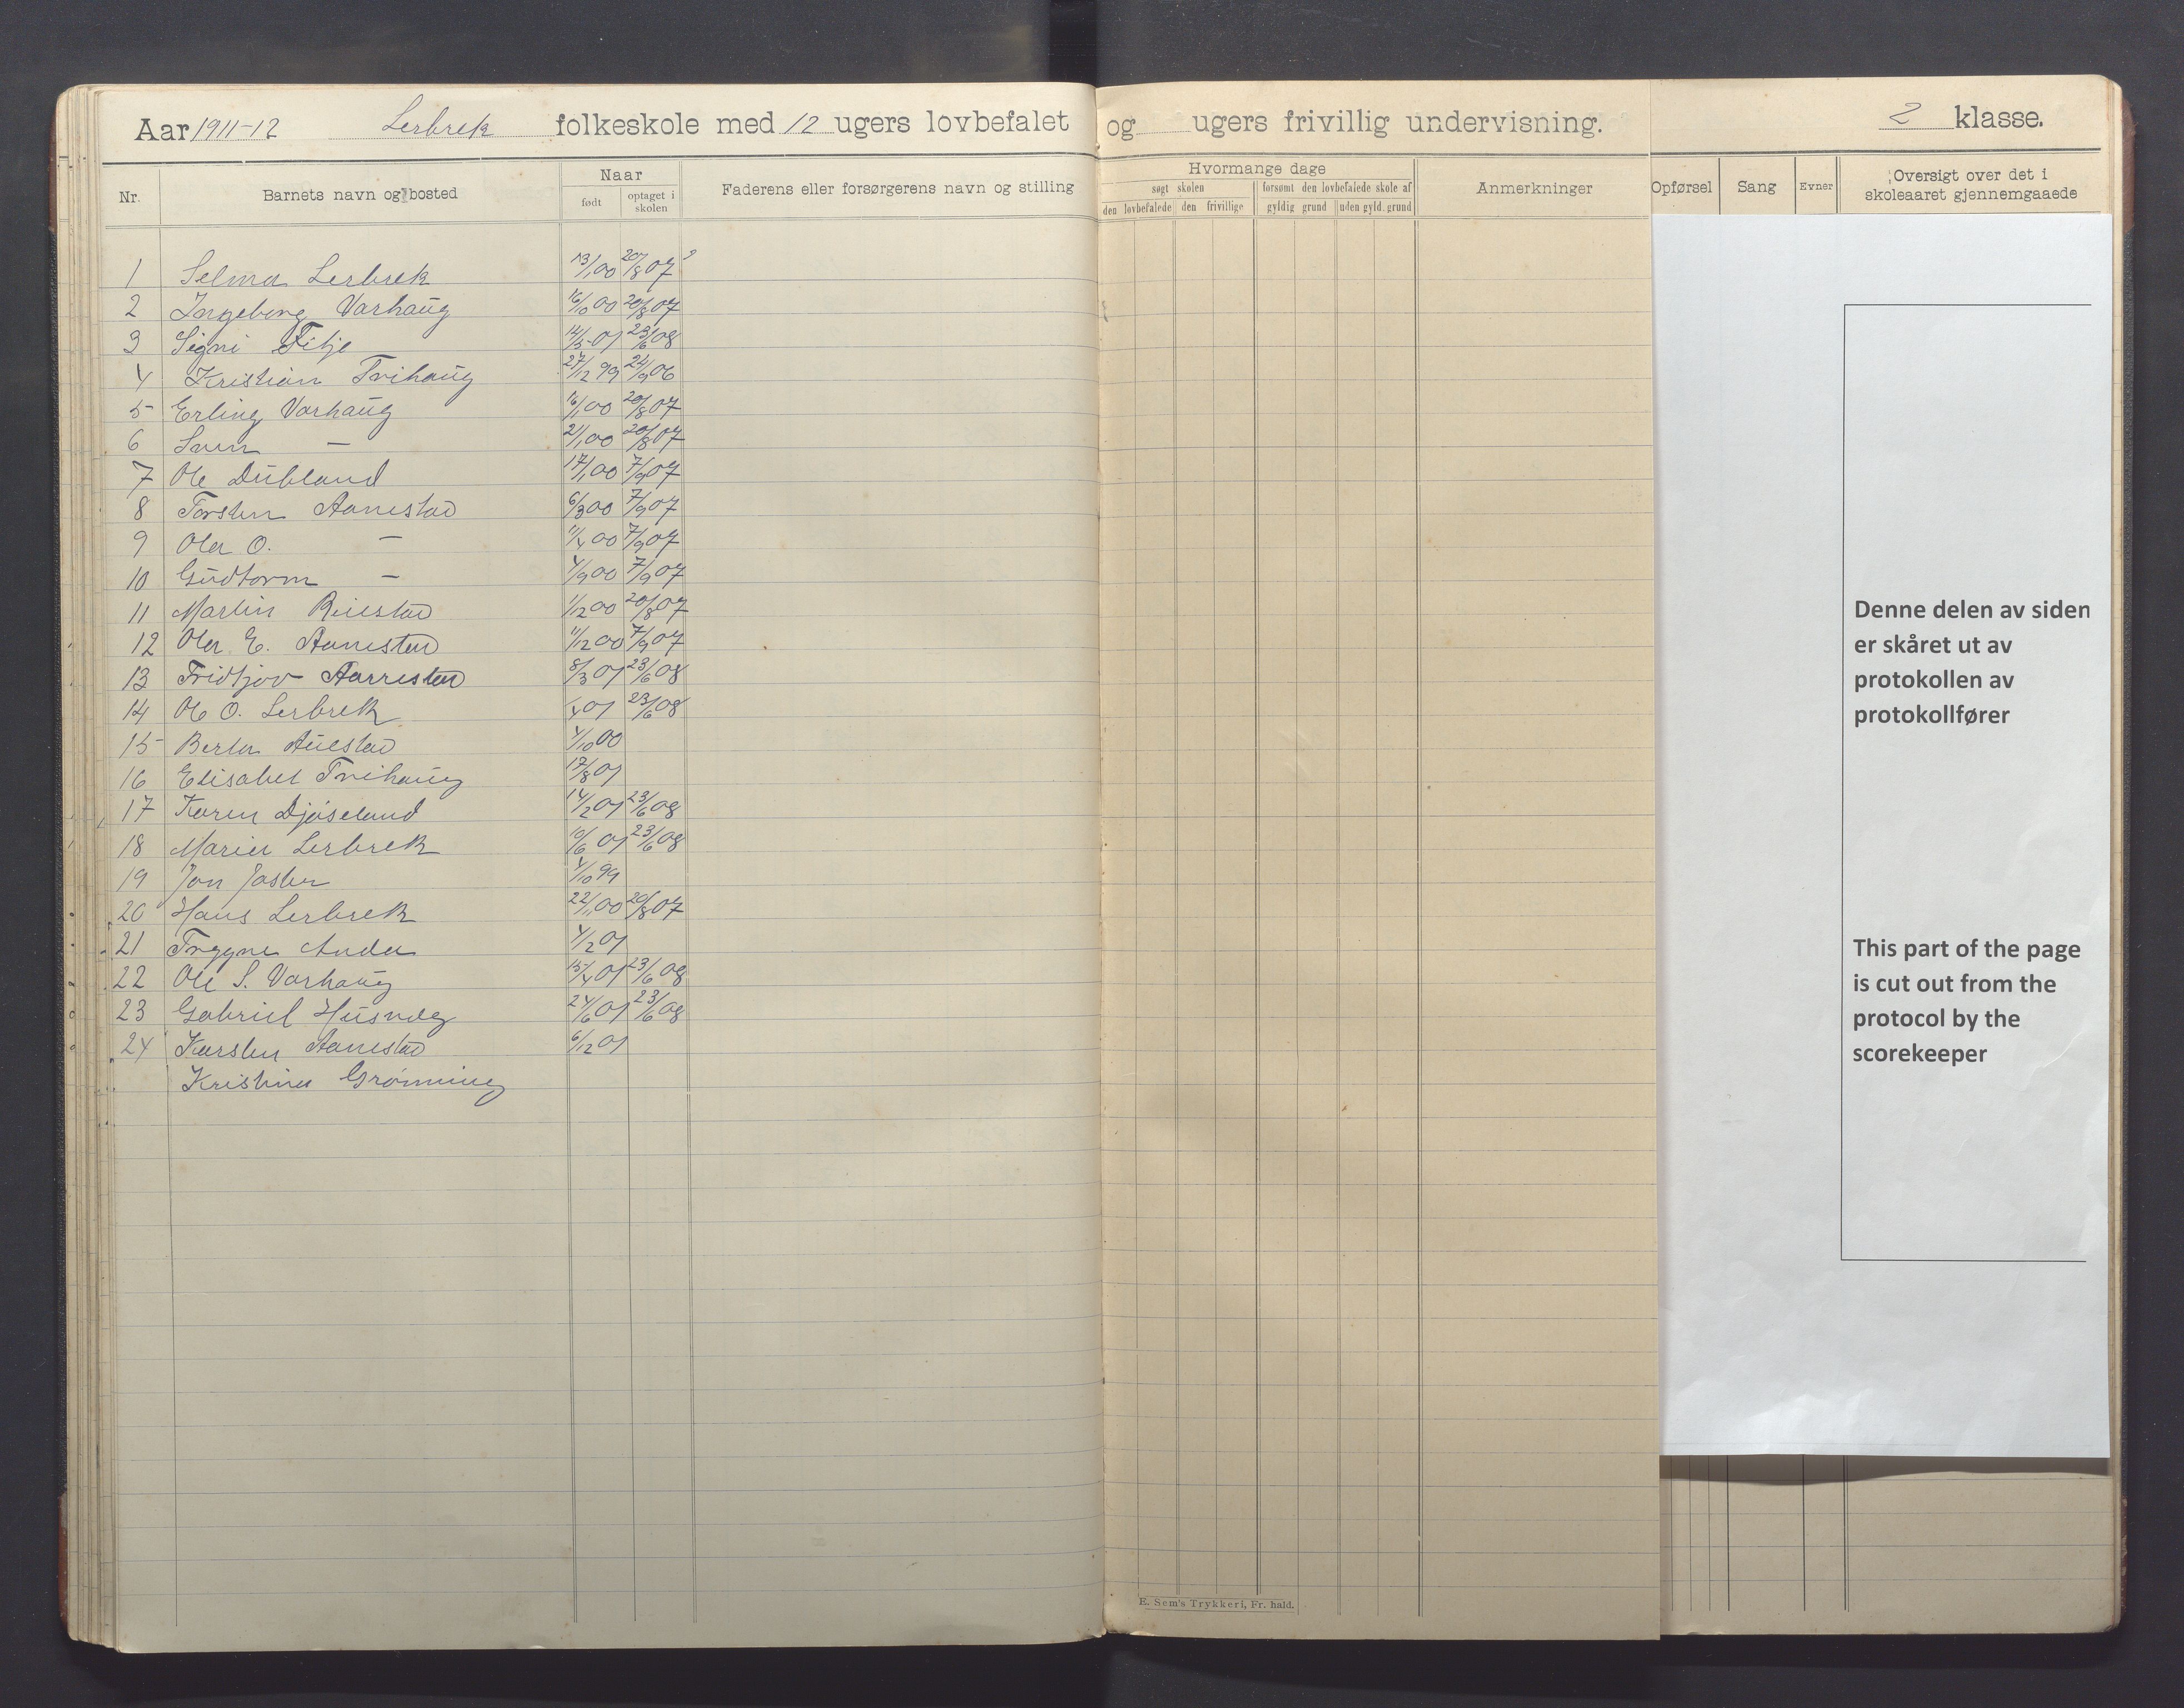 Aar 1911-12 Lerbrek folkeskole med 12 ugers lovbefalet og ugers frivillig undervisning. 2 klasse.
Nr. Barnets navn og bosted Naar født optaget i skolen Faderens eller forsørgerens navn og stilling Hvormange dage søgt skolen den lovbefalede den frivillige forsømt den lovbefalede skole af gyldig grund uden gyld. grund Anmerkninger Opførsel Sang Evner Oversigt over det i skoleaaret gjennemgaaede
1 Selma Lerbrek 13/1 00 20/8 07
2 Ingeborg Varhaug 16/10 00 20/8 07
3 Signi Fitje 14/5 01 23/6 08
4 Kristian Tvihaug 27/12 99 24/9 06
5 Erling Varhaug 16/1 00 20/8 07
6 Sven — 21/1 00 20/8 07
7 Ole Dubland 17/1 00 7/9 07
8 Torsten Aanestad 6/3 00 7/9 07
9 Ola O. — 11/4 00 7/9 07
10 Gudtorm — 4/9 00 7/9 07
11 Martin Riestad 1/12 00 20/8 07
12 Ola E. Aanestad 11/12 00 7/9 07
13 Fridtjov Aarrestad 8/3 01 23/6 08
14 Ole O. Lerbrek /4 01 23/6 08
15 Berta Auestad 4/10 00
16 Elisabet Tvihaug 17/8 01
17 Karen Djøseland 14/2 01 23/6 08
18 Maria Lerbrek 10/6 01 23/6 08
19 Jon 4/10 99
20 Hans Lerbrek 22/1 00 20/8 07
21 Trygve Anda 4/2 01
22 Ole S. Varhaug 15/4 01 23/6 08
23 Gabriel Husveg 24/6 01 23/6 08
24 Karsten Aanestad 6/12 01
Kristina Grønning
E. Sem's Trykkeri, Fr. hald.
Denne delen av siden
er skåret ut av
protokollen av
protokollfører
This part of the page
is cut out from the
protocol by the
scorekeeper